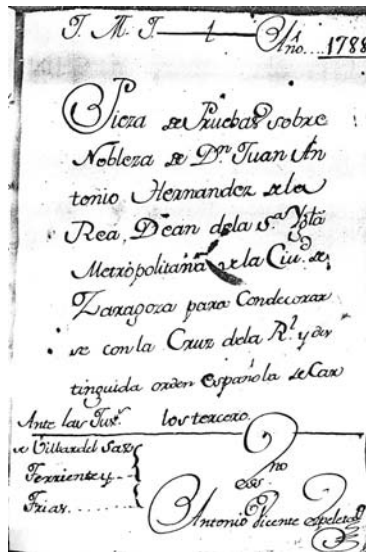 J. M. J. 1 Año.... 1788
Pieza de Pruebas sobre
Nobleza de Dn. Juan An
tonio Hernandez de la
Rea, Dean de la Sta. Ygta
Metropolitana de la Ciud. de
Zaragoza para Condecorar
se con la Cruz dela Rl. y dis
tinguida orden Española de Car
los tercero.
Ante las Jus.
de Villar del Saz
Terriente y
Frias.......
Esno
Antonio Vicente Espeleta